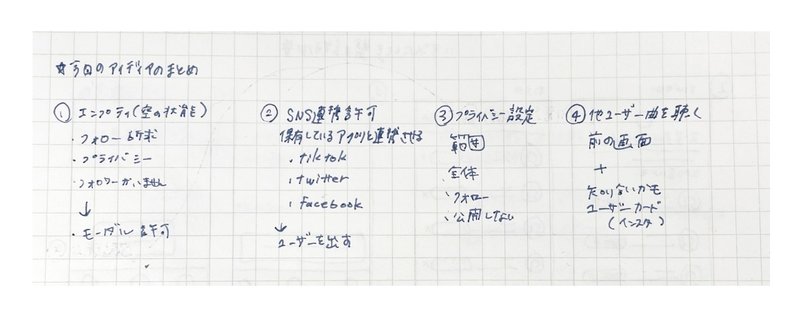 ☆今回のアイディアのまとめ
① エンプティ(空の状態)
・フォロー訴求
・プライバシー
・フォロワーがいません
↓
・モーダル許可
② SNS連携許可
保有しているアプリと連携させる
・tiktok
・twitter
・facebook
↓
ユーザーを出す
③ プライバシー設定
範囲
・全体
・フォロー
・公開しない
④ 他ユーザー曲を聴く
前の画面
+
知り合いかも
ユーザーカード
(インスタ)